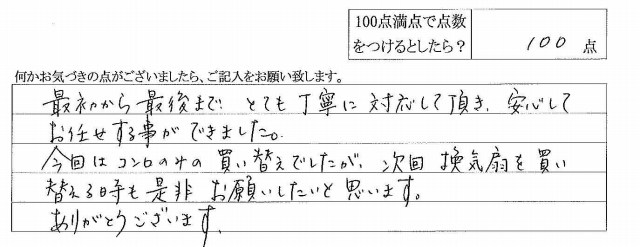 100点満点で点数
をつけるとしたら？
100 点
何かお気づきの点がございましたら、ご記入をお願い致します。
最初から最後まで とても丁寧に対応して頂き、安心して
お任せする事ができました。
今回はコンロのみの買い替えでしたが、次回換気扇を買い
替える時も是非お願いしたいと思います。
ありがとうございます。